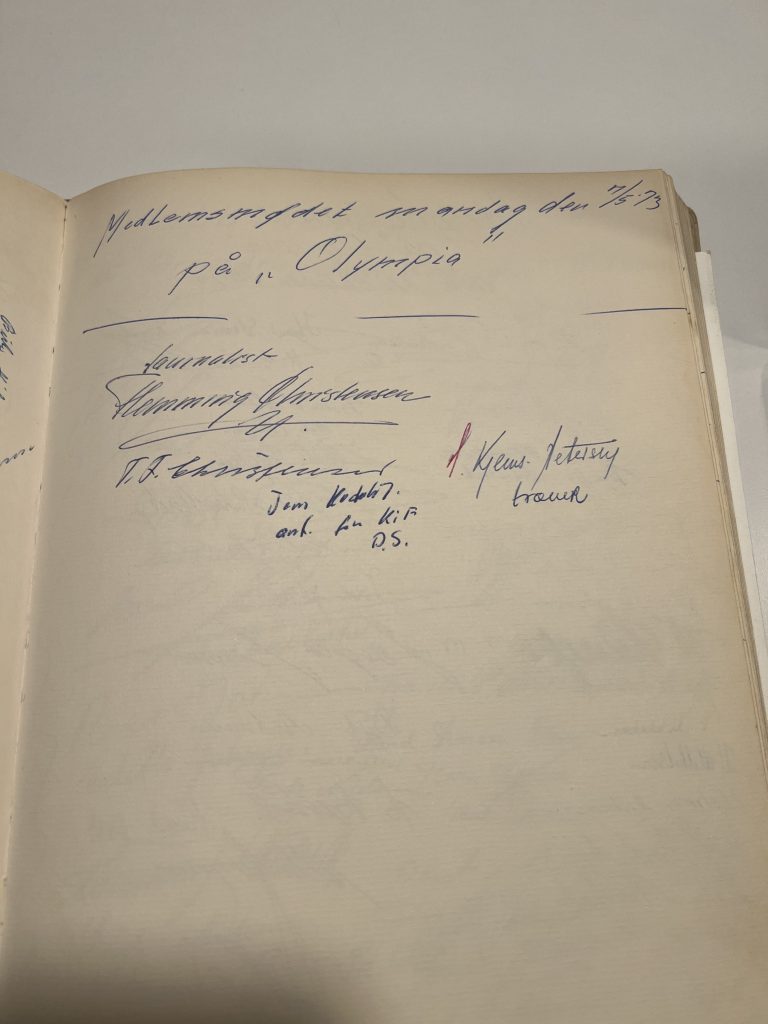 Medlemsmødet mandag den 7/5-73
på „Olympia"
Journalist
Flemming Christensen
T. F. Christensen
Jørn
anf. for KiF
D.S.
Kjems. Petersen